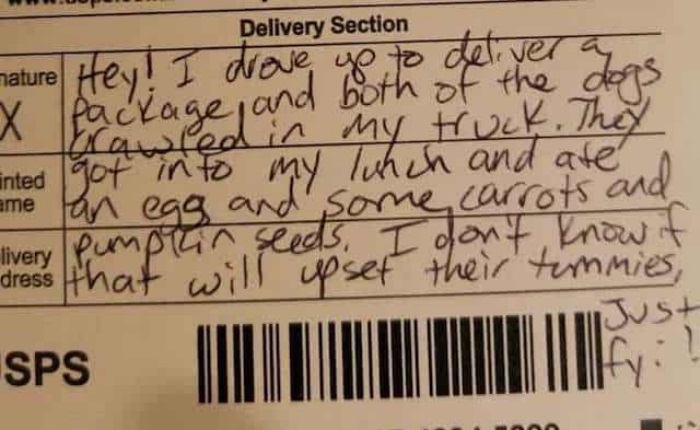 Delivery Section
nature
Hey! I drove up to deliver a
X
package, and both of the dogs
crawled in my truck. They
inted
ame
got into my lunch and ate
an egg and some carrots and
livery
dress
pumpkin seeds. I don't know if
that will upset their tummies,
Just
fyi!
USPS